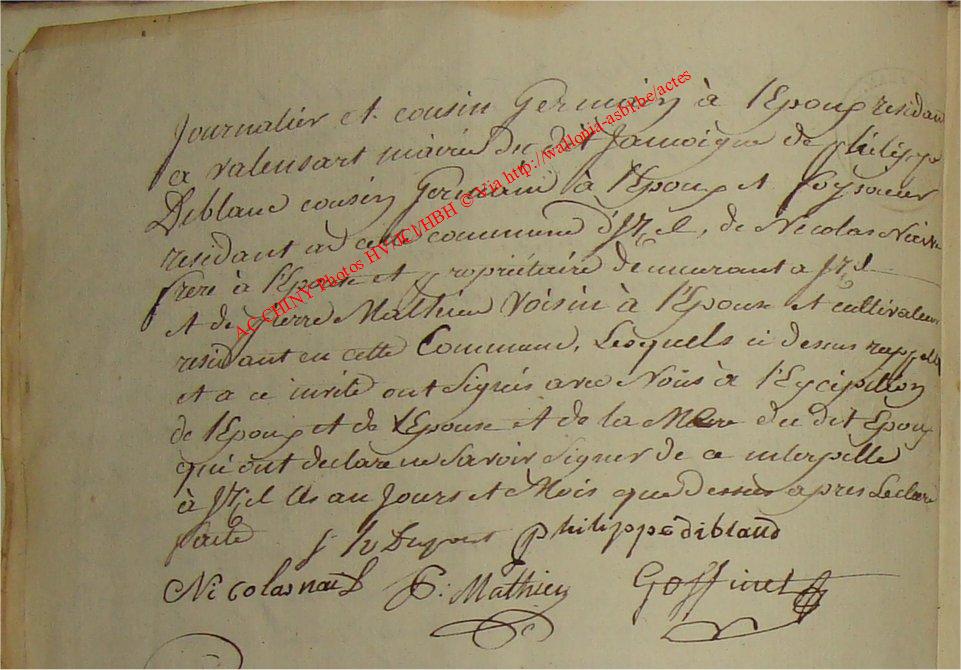 journalier et cousin Germain à l'Epoux residant
a valensart mairie du dit Jamoigne de philippe
Deblane cousin Germain à l'Epoux et
residant a cette commune d'Izel, de Nicolas
frere à l'Epouse et propriétaire demeurant a Izel
et de pierre Mathieu voisin à l'Epouse et cultivateur
residant en cette Commune, Lesquels ci dessus rappellé
et a ce invité ont Signés avec Nous à l'Exception
de l'Epoux et de l'Epouse et de la Mere du dit Epoux
qui ont declaré ne Savoir Signer de ce interpellé
à Izel les an Jours et Mois que Dessus apres Lecture
faite Dupont philippe diblaud
Nicolas P: Mathieu Goffinet
AC CHINY Photos HV/ICI/HBH © via http://wallonia-asbl.be/actes